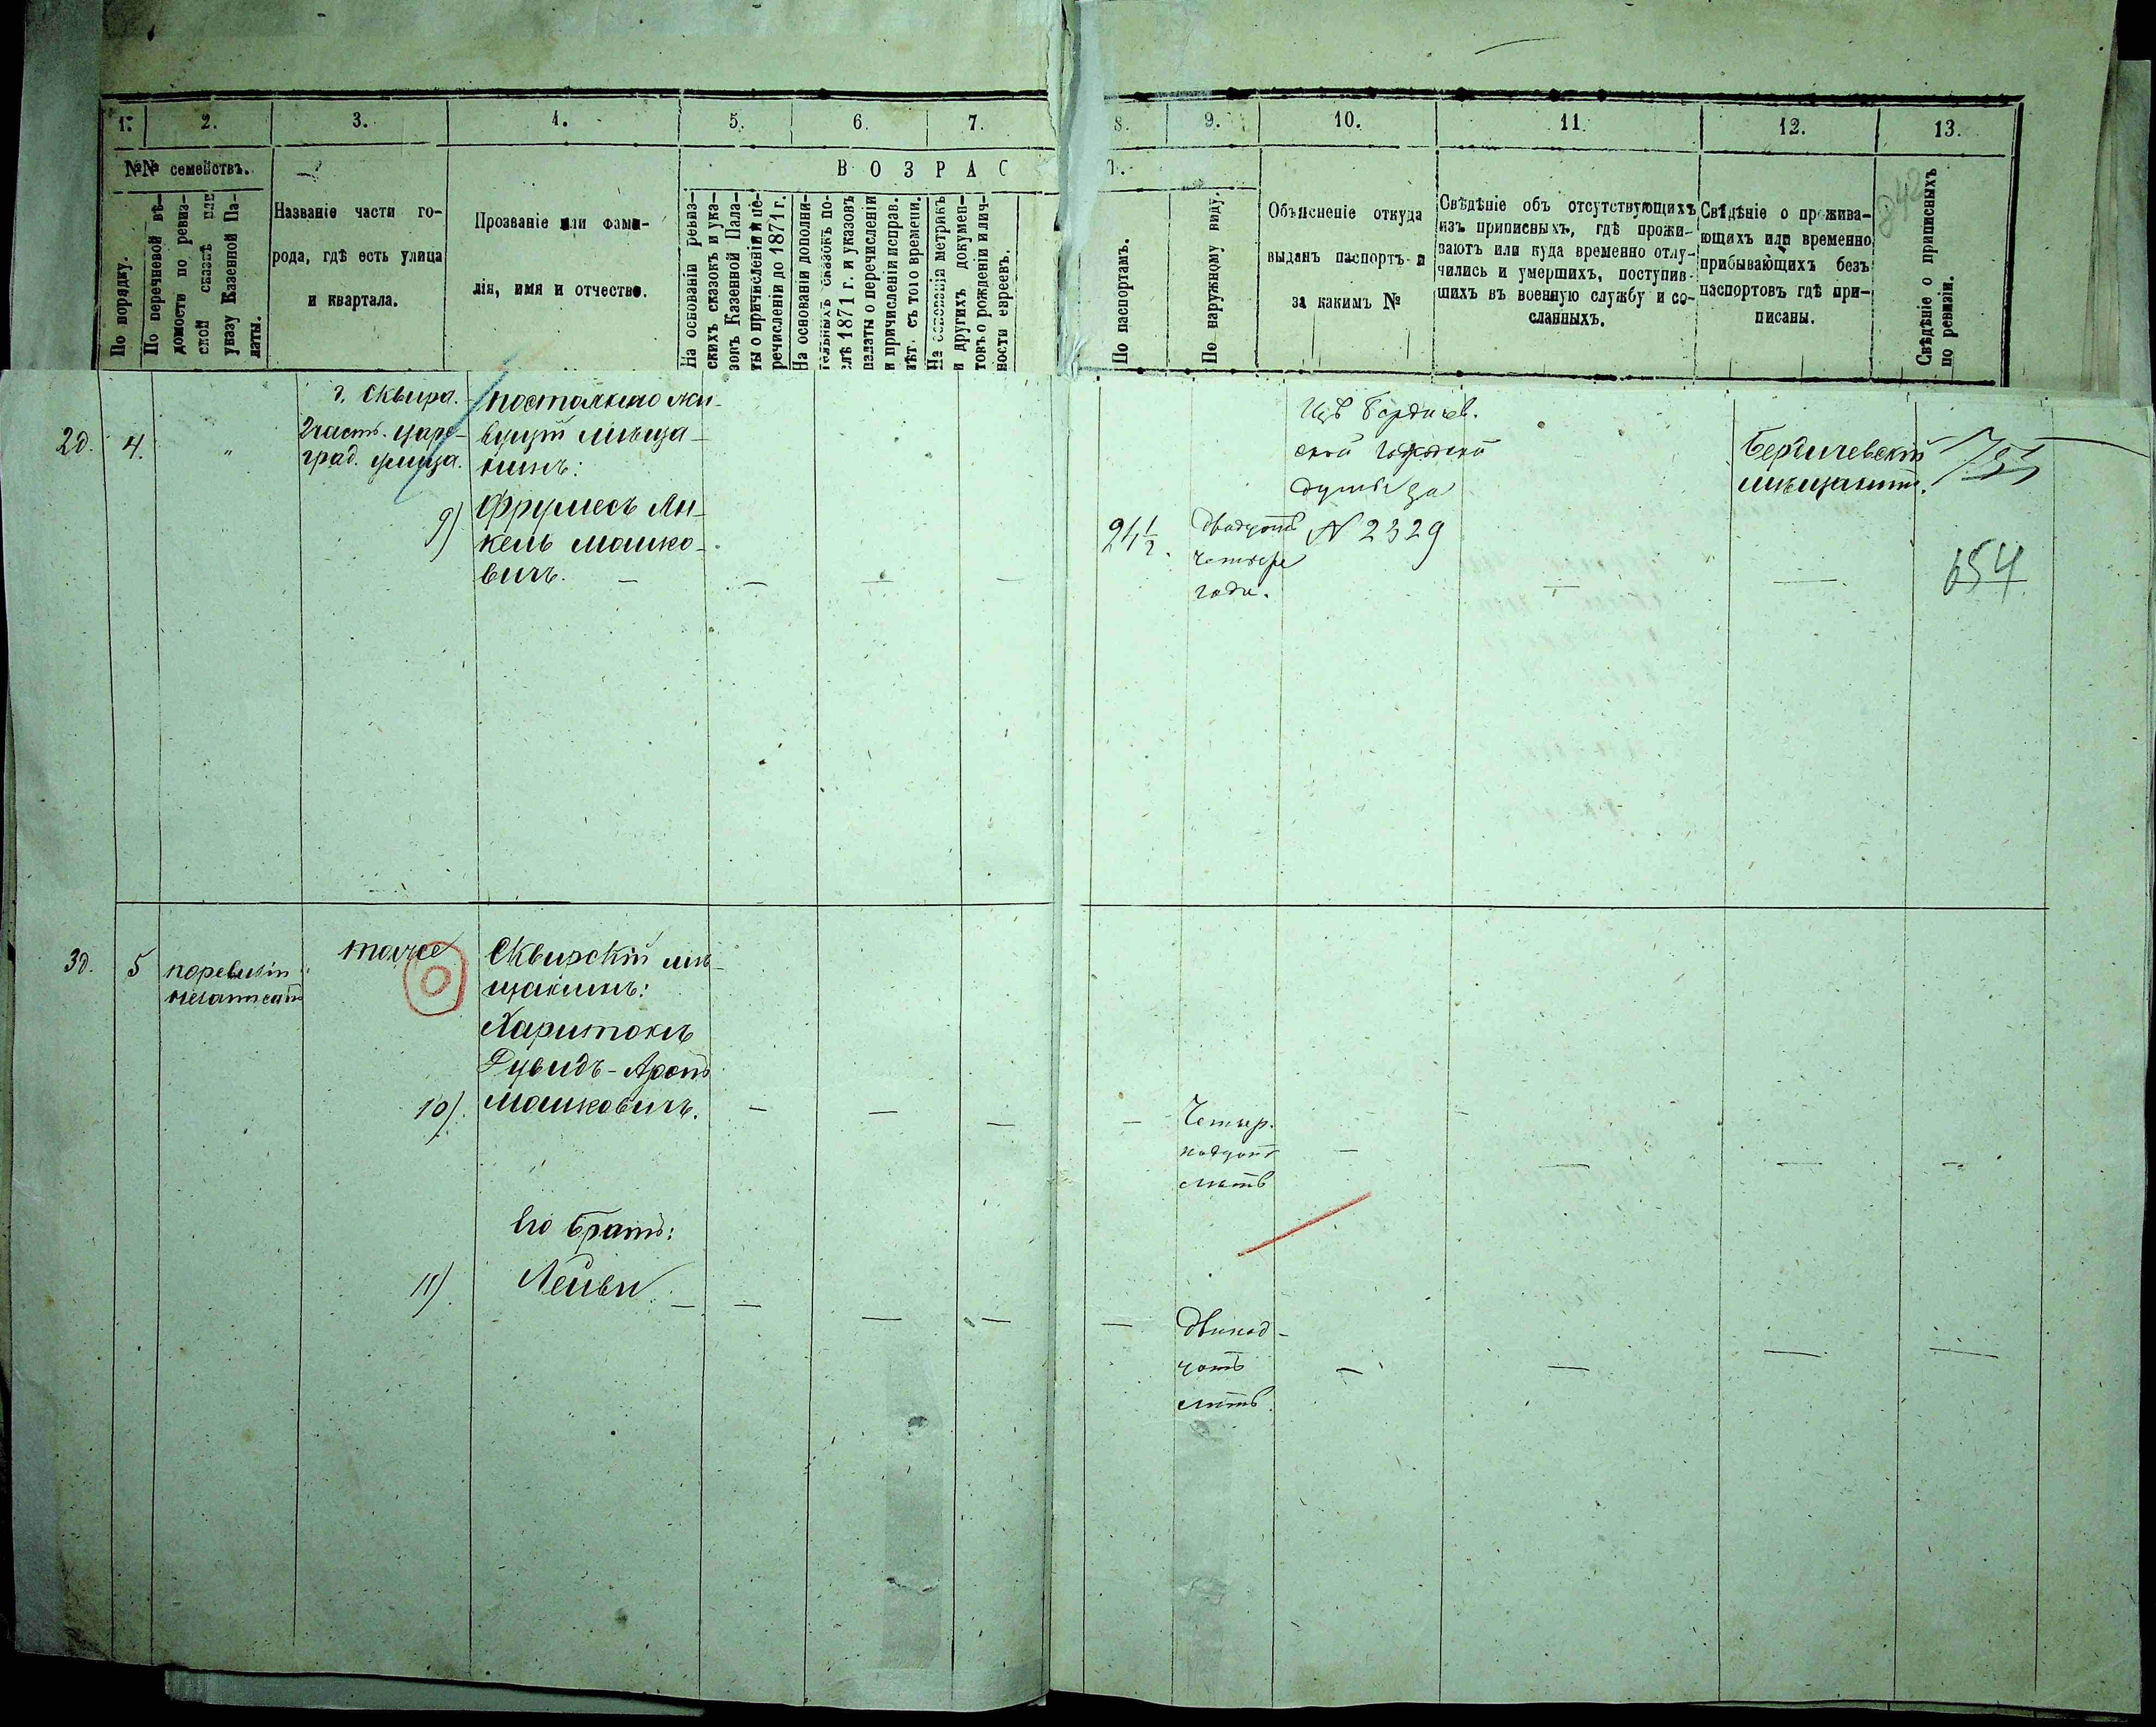 1.
2.
3.
4.
5.
6.
7.
8.
9.
10.
11.
12.
13.
№№ семействъ.
По порядку.
По перечневой вѣ-
домости по ревиз-
ской сказкѣ или
указу Казенной Па-
латы.
Названіе части го-
рода, гдѣ есть улица
и квартала.
Прозваніе или фами-
лія, имя и отчество.
ВОЗРАС
На основаніи ревиз-
скихъ сказокъ и ука-
зовъ Казенной Пала-
ты о причисленіи и пе-
речисленіи до 1871 г.
На основаніи дополни-
тельныхъ сказокъ по-
слѣ 1871 г. и указовъ
палаты о перечисленіи
и причисленіи исправ.
лѣт. съ того времени.
На основаніи метрикъ
и другихъ докумен-
товъ о рожденіи и лич-
ности евреевъ.
Т.
По паспортамъ.
По наружному виду.
Объясненіе откуда
выданъ паспортъ и
за какимъ №
Свѣдѣніе объ отсутствующихъ
изъ приписныхъ, гдѣ прожи-
ваютъ или куда временно отлу-
чились и умершихъ, поступив-
шихъ въ военную службу и со-
сланныхъ.
Свѣдѣніе о прожива-
ющихъ или временно
прибывающихъ безъ
паспортовъ гдѣ при-
писаны.
Свѣдѣніе о приписныхъ
по ревизіи.
842
2д.
4.
"
г. Сквира.
2 часть. Царе-
град. улица.
постоянно жи-
вущій мѣща-
нинъ:
9)
Фрумесъ Ян-
кель Мошко-
вичъ. —
24½.
двадцать
четыре
года.
Изъ Бердичев.
ской Городской
думы за
№ 2329
Бердичевскій
мѣщанинъ.
654
3д.
5
по ревизіи
не записанъ
тоже
Сквирскій мѣ-
щанинъ:
Харитонъ
Дувидъ-Аронъ
10).
Мошковичъ.
Четыр.
надцать
лѣтъ
Его братъ:
11)
Лейви
двинад-
цать
лѣтъ.